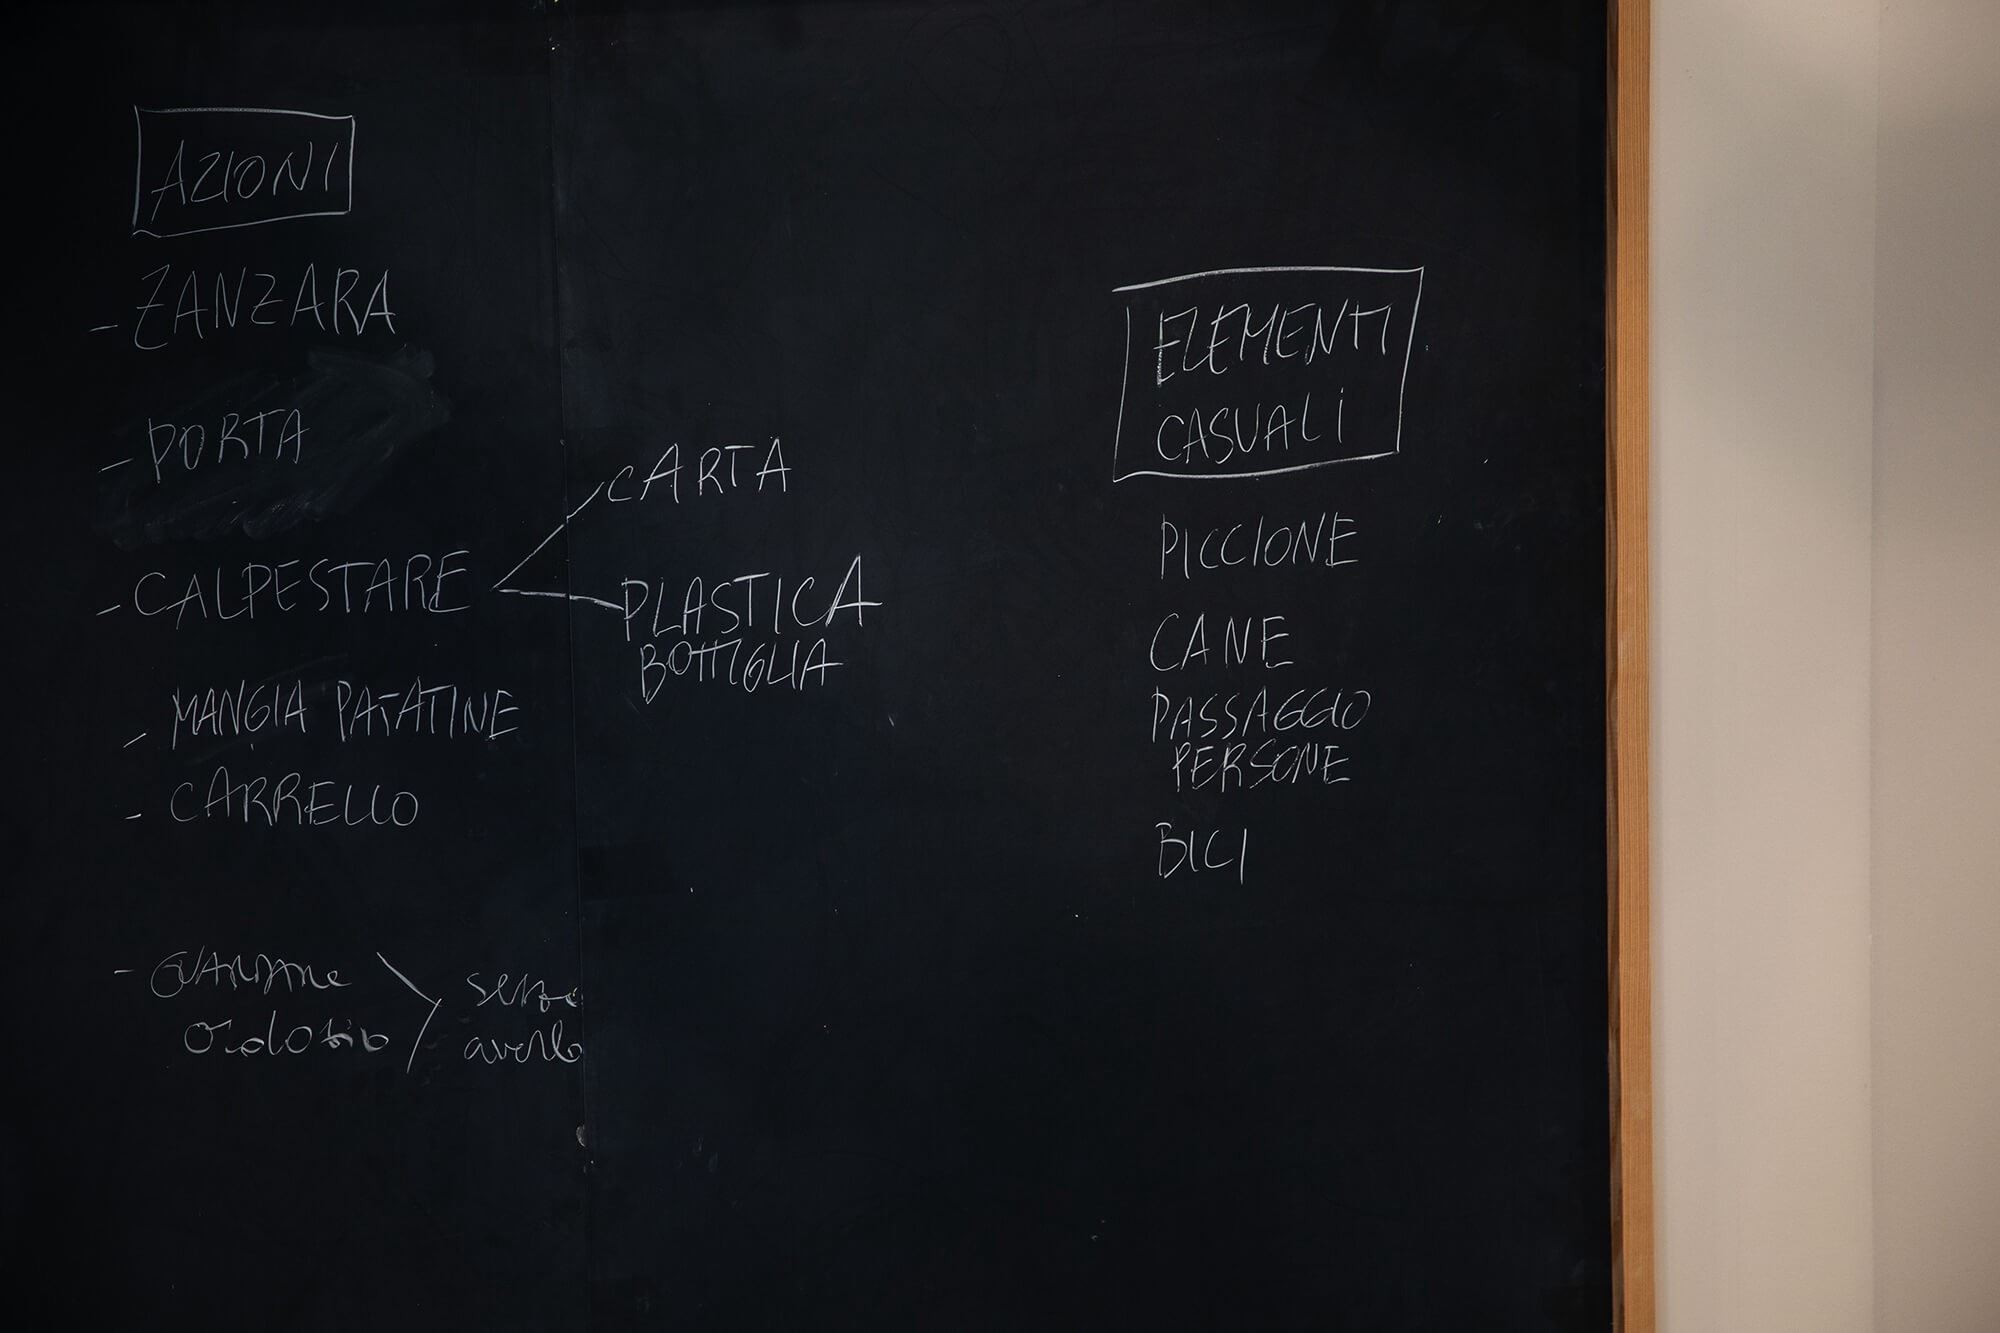 AZIONI
- ZANZARA
- PORTA
- CALPESTARE
CARTA
PLASTICA
BOTTIGLIA
- MANGIA PATATINE
- CARRELLO
- GUARDARE
OROLOGIO
senza
averlo
ELEMENTI
CASUALI
PICCIONE
CANE
PASSAGGIO
PERSONE
BICI